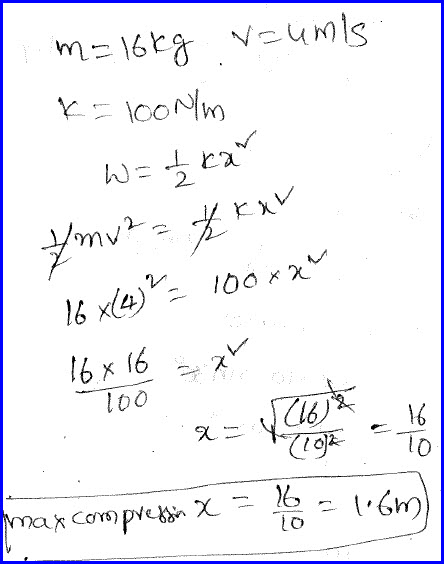 m = 16kg v = 4m/s
K = 100N/m
W = 1/2 Kx²
1/2 mv² = 1/2 Kx²
16 × (4)² = 100 × x²
16 × 16 / 100 = x²
x = √((16)² / (10)²) = 16/10
max compression x = 16/10 = 1.6m